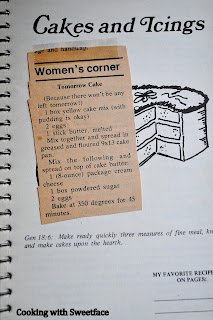 Cakes and Icings
age and handicap.
Women's corner
Tomorrow Cake
(Because there won't be any
left tomorrow!)
1 box yellow cake mix (with
pudding is okay)
2 eggs
1 stick butter, melted
Mix together and spread in
greased and floured 9x13 cake
pan.
Mix the following and
spread on top of cake batter:
1 (8-ounce) package cream
cheese
1 box powdered sugar
2 eggs
Bake at 350 degrees for 45
minutes.
Gen 18:6: Make ready quickly three measures of fine meal, kn
and make cakes upon the hearth.
MY FAVORITE RECIP
ON PAGES:
Cooking with Sweetface